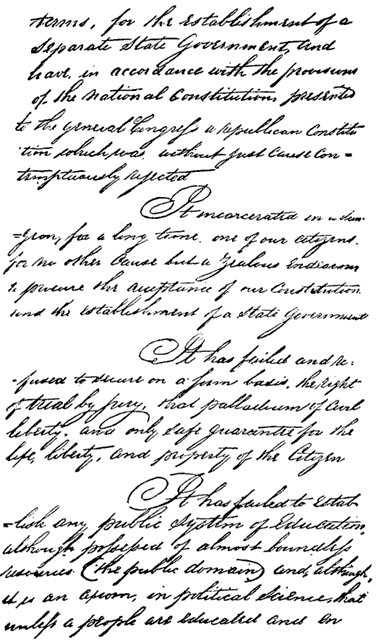 terms, for the establishment of a
separate State Government, and
have, in accordance with the provisions
of the national Constitution, presented
to the general Congress a republican Constitu
tion which was without just Cause Con=
temptuously rejected
It incarcerated in a dun-
=geon, for a long time, one of our citizens,
for no other Cause but a Zealous endeavor
to procure the acceptance of our Constitution
and the establishment of a State Government
It has failed and re-
-fused to secure on a firm basis, the right
of trial by jury, that palladium of Civil
liberty, and only safe guarantee for the
life, liberty, and property of the Citizen
It has failed to estab
-lish any public System of Education,
although possessed of almost boundless
resources (the public domain) and, although,
it is an axiom, in political Science, that
unless a people are educated and en